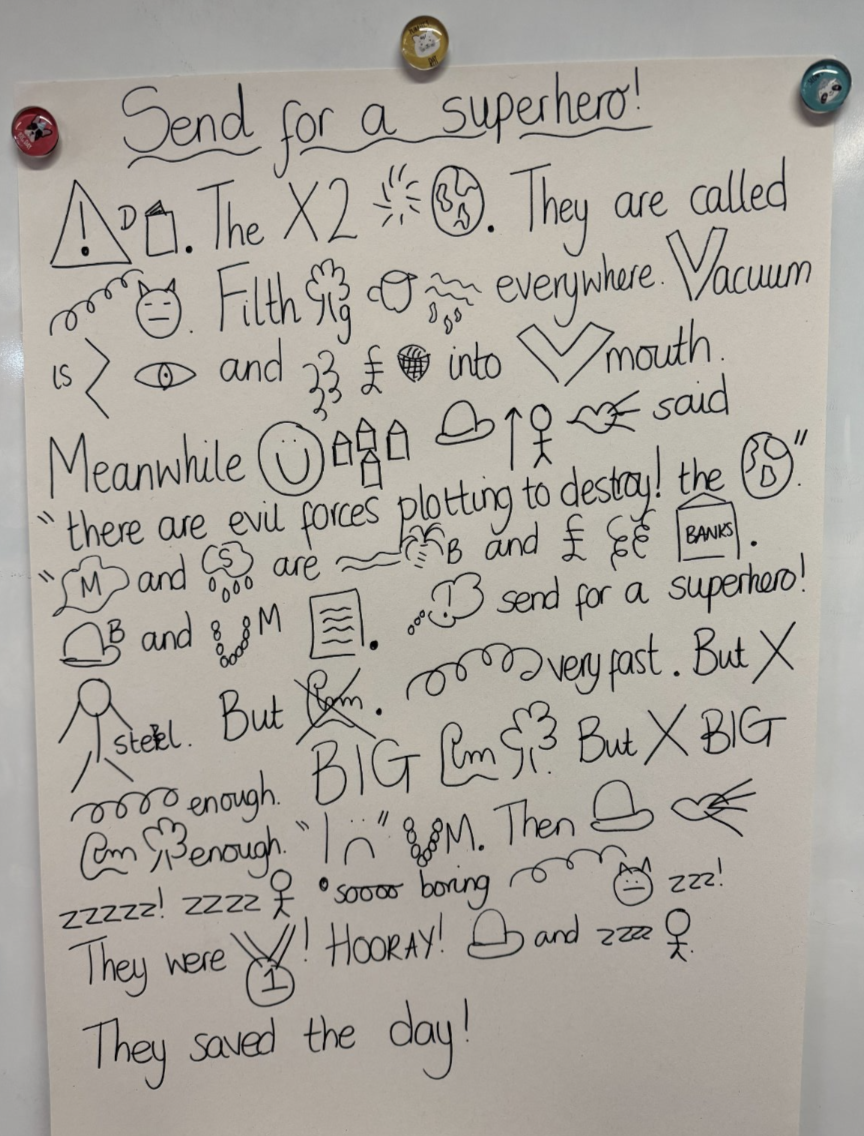 Send for a superhero!
D. The X2. They are called
Filth g everywhere. Vacuum
is and £ into V mouth.
Meanwhile said
"there are evil forces plotting to destroy! the D".
"M and S are B and £ BANKS.
B and M. ! send for a superhero!
very fast. But X
steel. But m.
enough. BIG m. But X BIG
m enough. "I" M. Then
zzzzz! zzzz soooo boring zzz!
They were 1! HOORAY! and zzzz
They saved the day!